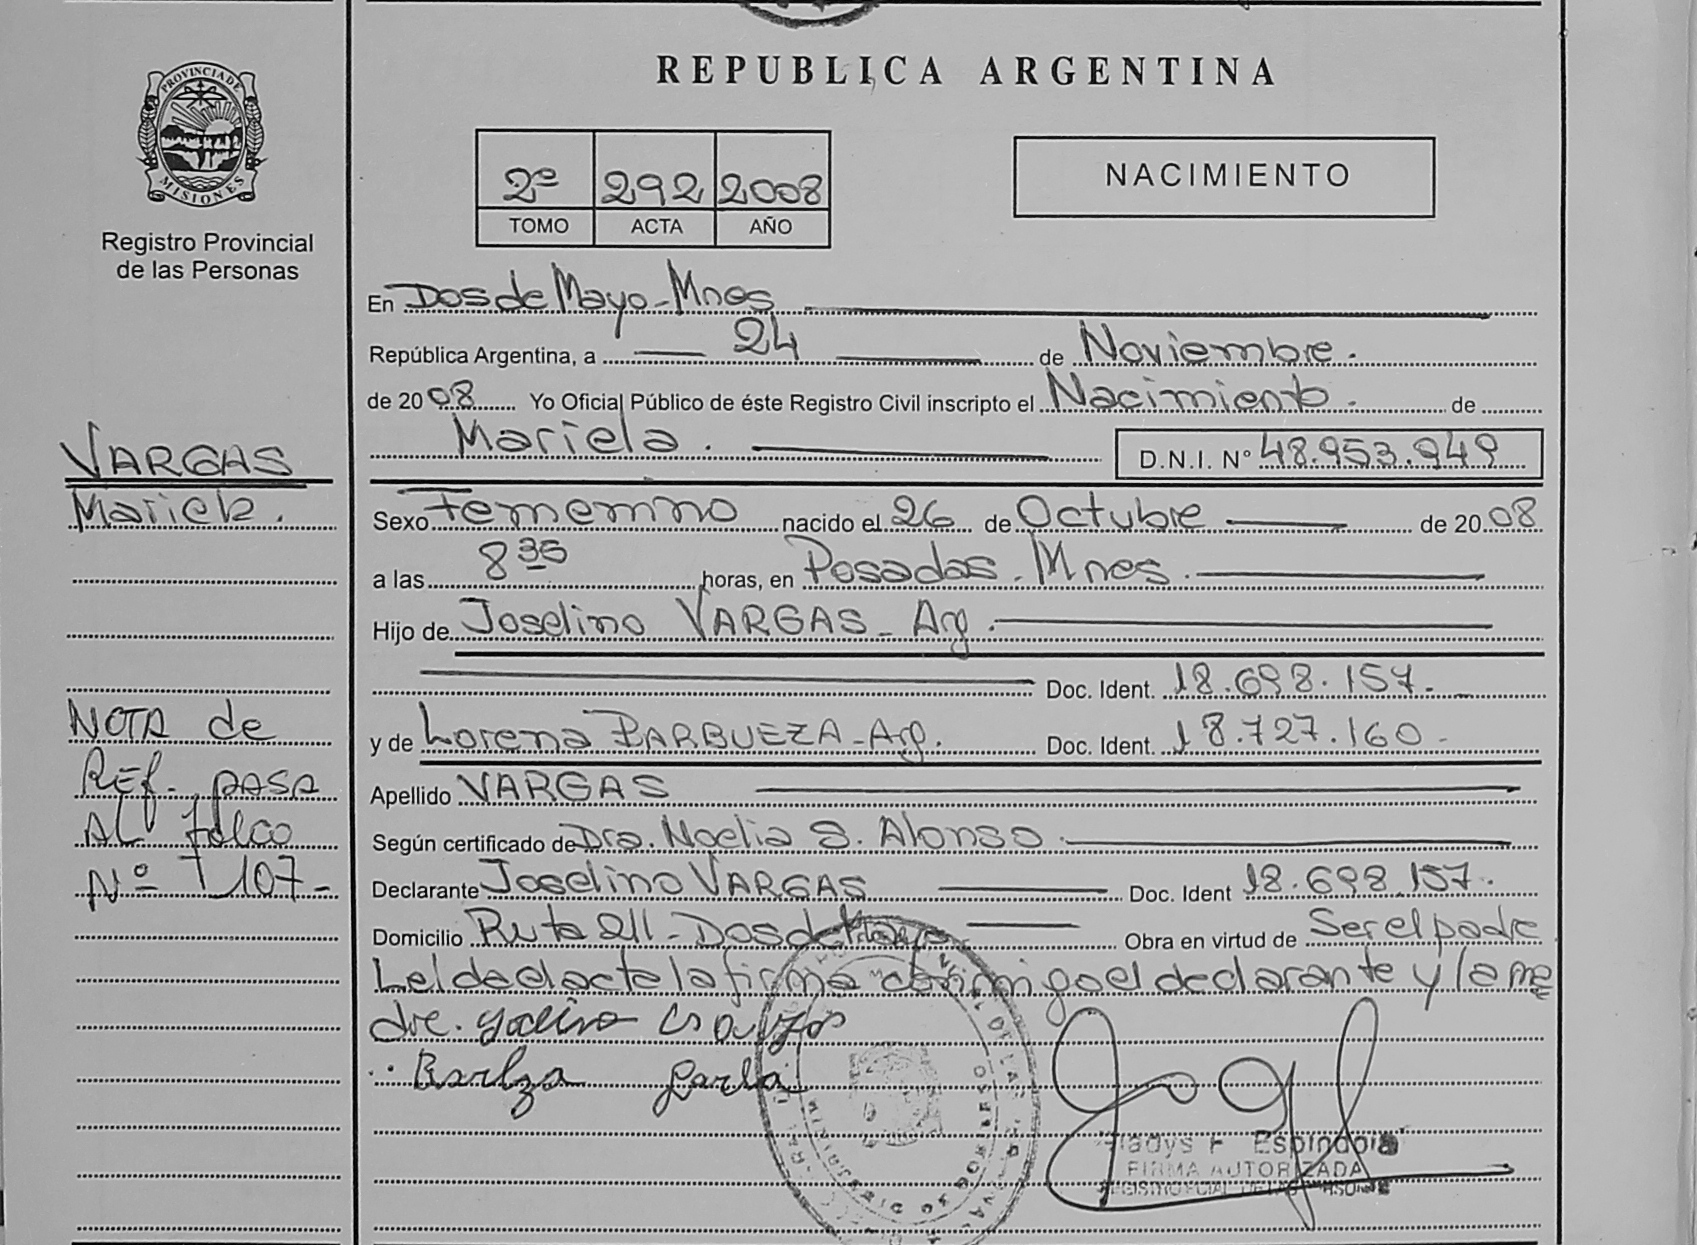 REPUBLICA ARGENTINA
PROVINCIA DE
MISIONES
Registro Provincial
de las Personas
2º 292 2008
TOMO ACTA AÑO
NACIMIENTO
En Dos de Mayo - Mnes
República Argentina, a 24 de Noviembre.
de 2008 Yo Oficial Público de éste Registro Civil inscripto el Nacimiento. de
Mariela. D.N.I. Nº 48.953.949
VARGAS
Mariela.
Sexo Femenino nacido el 26 de Octubre de 2008
a las 8 35 horas, en Posadas. Mnes.
Hijo de Joselino VARGAS - Arg.
Doc. Ident. 18.698.157.
y de Lorena BARBUEZA - Arg. Doc. Ident. 18.727.160-
Apellido VARGAS
Según certificado de Dra. Noelia S. Alonso.
Declarante Joselino VARGAS Doc. Ident 18.698.157.
Domicilio Ruta 211 - Dos de Mayo Obra en virtud de Ser el padre
Leída el acta la firma conmigo el declarante y la ma
dre.
NOTA de
REf. pasa
AL folio
Nº 107-
Gladys F Espindola
FIRMA AUTORIZADA